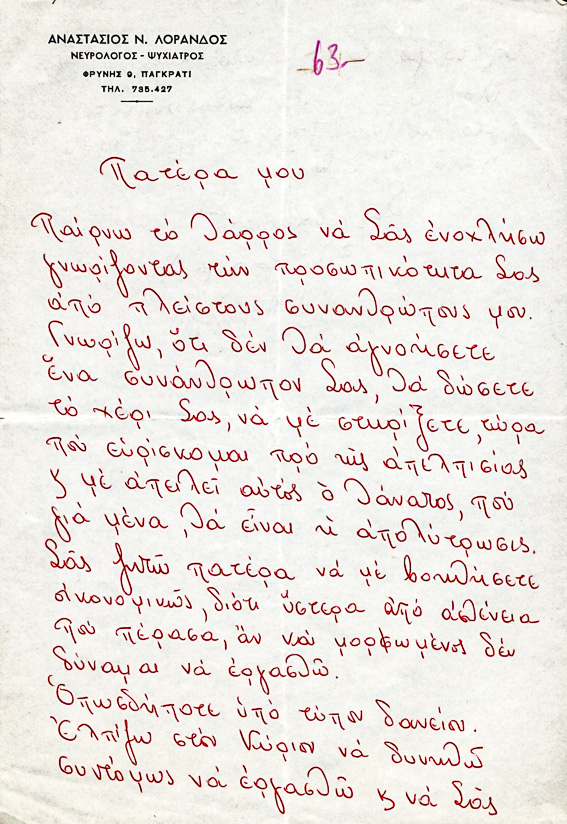 ΑΝΑΣΤΑΣΙΟΣ Ν. ΛΟΡΑΝΔΟΣ
ΝΕΥΡΟΛΟΓΟΣ - ΨΥΧΙΑΤΡΟΣ
ΦΡΥΝΗΣ 9, ΠΑΓΚΡΑΤΙ
ΤΗΛ. 735.427
-63-
Πατέρα μου
Παίρνω τό θάρρος νά Σᾶς ἐνοχλήσω
γνωρίζοντας τήν προσωπικότητα Σας
ἀπό πλείστους συνανθρώπους μου.
Γνωρίζω, ὅτι δέν θά ἀγνοήσετε
ἕνα συνάνθρωπον Σας, θά δώσετε
τό χέρι Σας, νά μέ στηρίξετε, τώρα
πού εὑρίσκομαι πρό τῆς ἀπελπισίας
ϗ μέ ἀπειλεῖ αὐτός ὁ θάνατος, πού
γιά μένα, θά εἶναι ἡ ἀπολύτρωσις.
Σᾶς ζητῶ πατέρα νά μέ βοηθήσετε
οἰκονομικῶς, διότι ὕστερα ἀπό ἀσθένεια
πού πέρασα, ἄν καί μορφωμένος δέν
δύναμαι νά ἐργασθῶ.
Ὁπωσδήποτε ὑπό τύπον δανείου.
Ἐλπίζω στόν Κύριον νά δυνηθῶ
συντόμως νά ἐργασθῶ ϗ νά Σᾶς